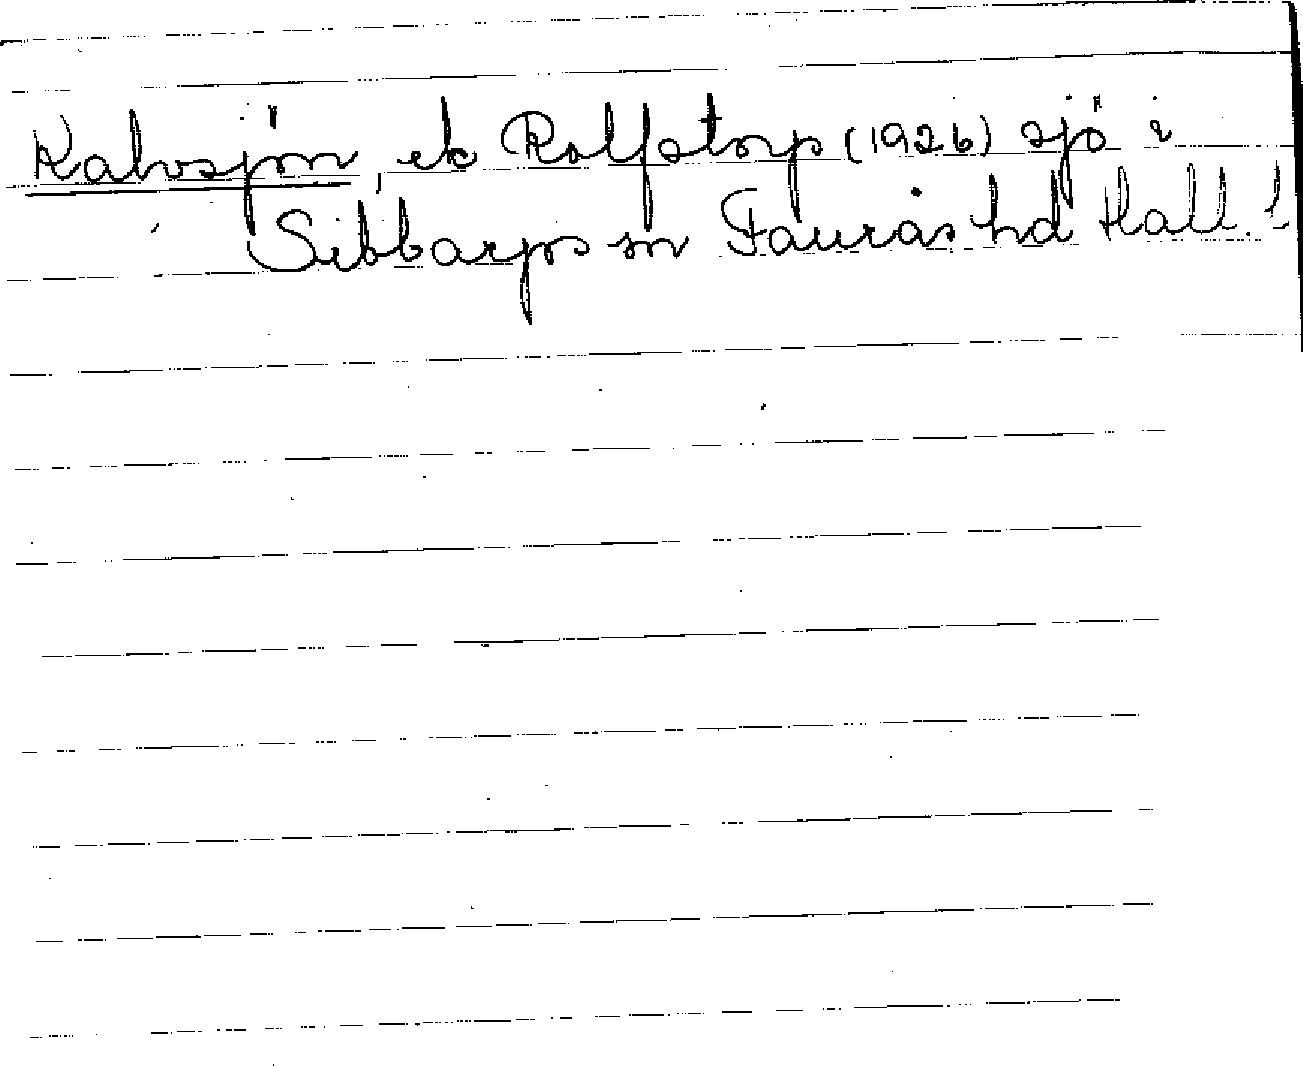 Kalvsjön, ek Rolfstorp (1926) sjö i
Sibbarps sn Faurås hd Hall. l.